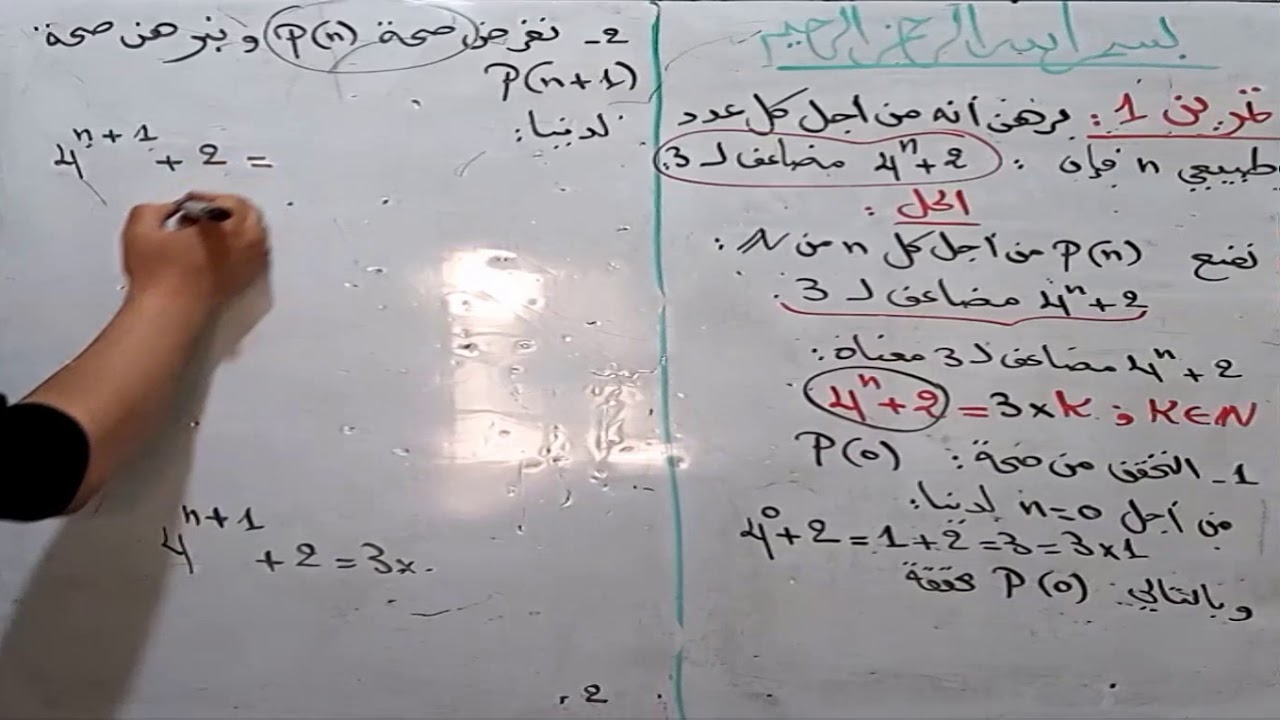 بسم الله الرحمن الرحيم
تمرين 1 : برهن أنه من أجل كل عدد
طبيعي n فإن : 4ⁿ+2 مضاعف لـ 3.
الحل :
نضع P(n) من أجل كل n من N :
4ⁿ+2 مضاعف لـ 3.
4ⁿ+2 مضاعف لـ 3 معناه :
4ⁿ+2 = 3×K ; K∈N
1- التحقق من صحة : P(0)
من أجل n=0 لدينا :
4⁰+2=1+2=3=3×1
وبالتالي : P(0) محققة
2- نفرض صحة P(n) ونبرهن صحة
P(n+1)
لدينا :
4ⁿ⁺¹+2=
4ⁿ⁺¹+2=3×.
2 .